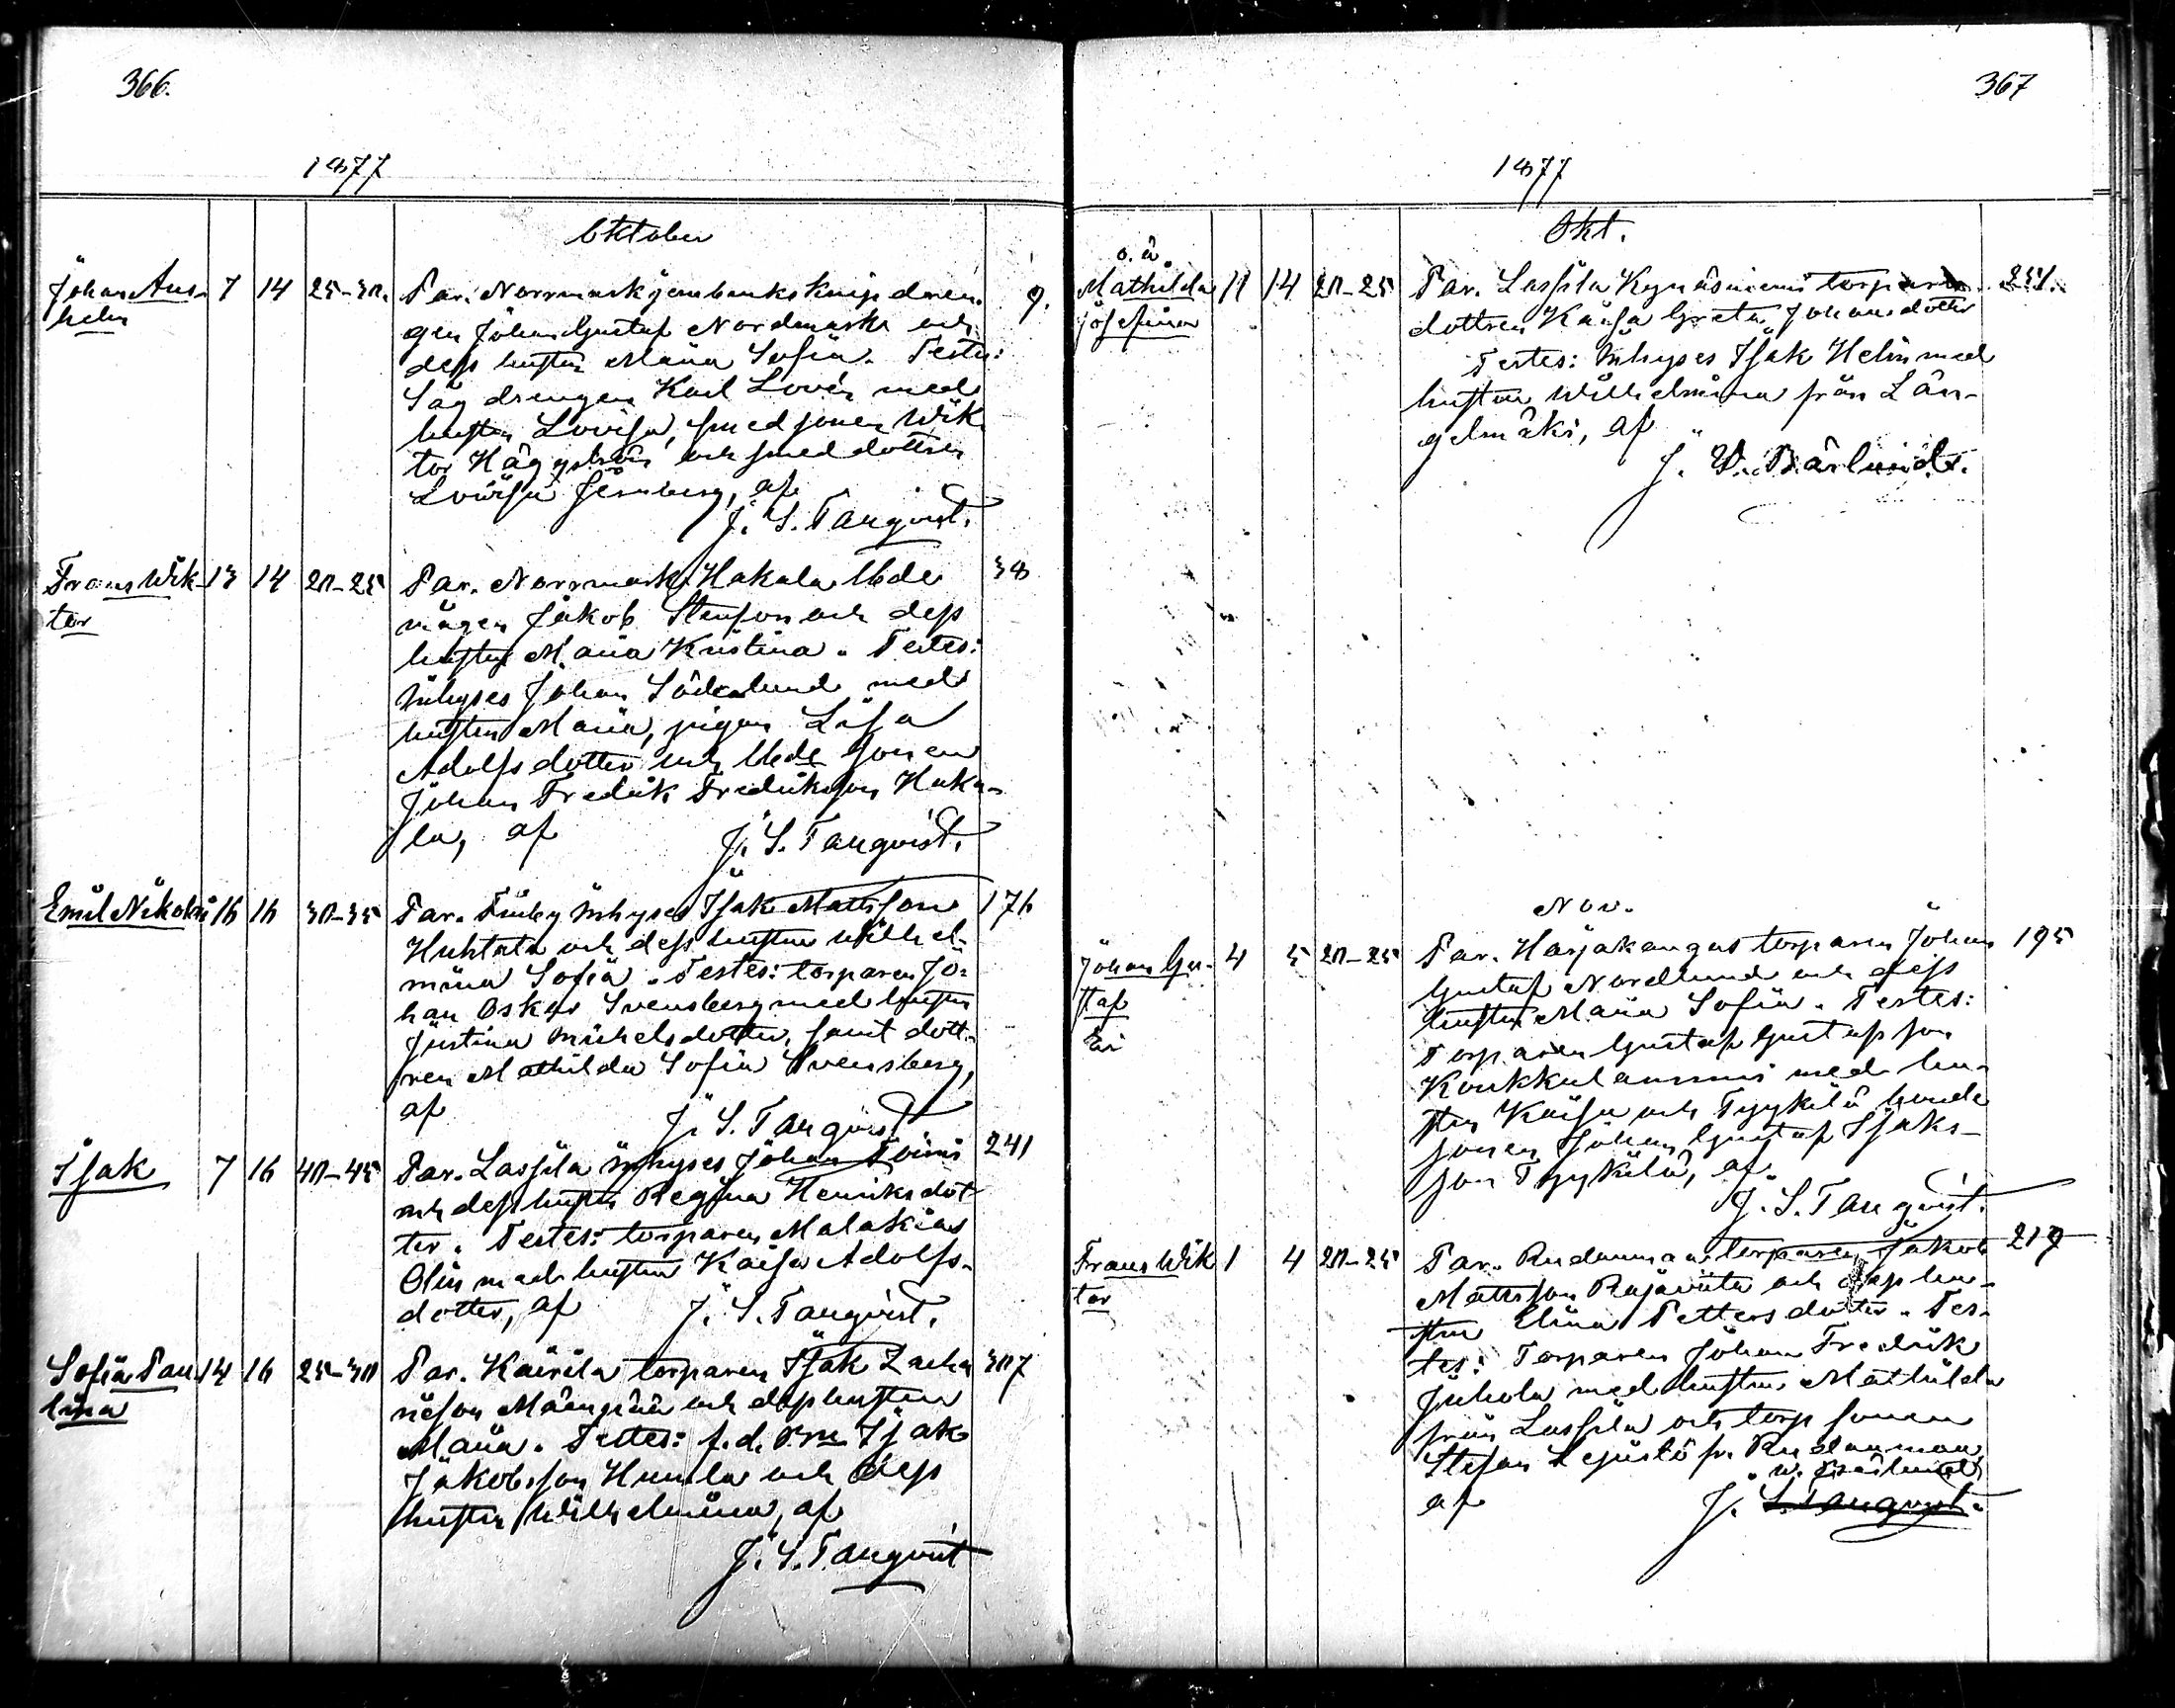 366.
1877
Oktober
Johan Ans-
helm
7 14 25-30.
Par. Norrmark jernbruks knipdren-
gen Johan Gustaf Nordmark och
dess hustru Maria Sofia. Testes:
Sågdrengen Karl Lovén med
hustru Lovisa, smedsonen Wik-
tor Häggström och smeddottren
Lovisa Jernberg, af
J. S. Tanqvist.
9.
Frans Wik-
tor
13 14 20-25
Par. Norrmark Hakala Bde
mågen Jakob Stenson och dess
hustru Maria Kristina. Testes:
Inhyses Johan Söderlund med
hustru Maria, pigan Lisa
Adolfsdotter och Bde sonen
Johan Fredrik Fredriksson Haka-
la, af
J. S. Tanqvist.
38
Emil Nikolai
16 16 30-35
Par. Finby Inhyses Isak Mattsson
Huhtala och dess hustru Wilhel-
mina Sofia. Testes: torparen Jo-
han Oskar Svensberg med hustru
Justina Mikelsdotter, samt dott-
ren Mathilda Sofia Svensberg,
af
J. S. Tanqvist
176
Isak
7 16 40-45
Par. Lassila Inhyses Johan
och dess hustru Regina Henriksdot-
ter. Testes: torparen Malakias
Olin med hustru Kaisa Adolfs-
dotter, af J. S. Tanqvist.
241
Sofia Pau-
lina
14 16 25-30
Par. Kairila torparen Isak Zacha-
riesson Mäenpää och dess hustru
Maria. Testes: f.d. Isak
Jakobsson Humla och dess
hustru Wilhelmina, af
J. S. Tanqvist
307
367
1877
Okt.
o. ä.
Mathilda
Josefina
11 14 20-25
Par. Lassila Kynäsniemi torpare
dottren Kaisa Greta Johansdotter
Testes: Inhyses Isak Helin med
hustru Wilhelmina från Län-
gelmäki, af
J. W. Bärlund.
251.
Nov.
Johan Gu-
staf
4 5 20-25
Par. Harjakangas torparen Johan
Gustaf Nordlund och dess
hustru Maria Sofia. Testes:
Torparen Gustaf Gustafsson
Koukkulanniemi med hu-
stru Kaisa och Tyykilä bonde
sonen Johan Gustaf Isaks-
son Tyykilä, af
J. S. Tanqvist.
195
Frans Wik
tor
1 4 20-25
Par. Rudanmaa torparen Jakob
Mattsson Rajaviita och dess hu-
stru Elina Pettersdotter. Tes-
tes: Torparen Johan Fredrik
Juhola med hustru Mathilda
från Lassila och torp sonen
Stefan Lejusto fr. Rudanmaa
W. Bärlund
af J. S. Tanqvist.
219